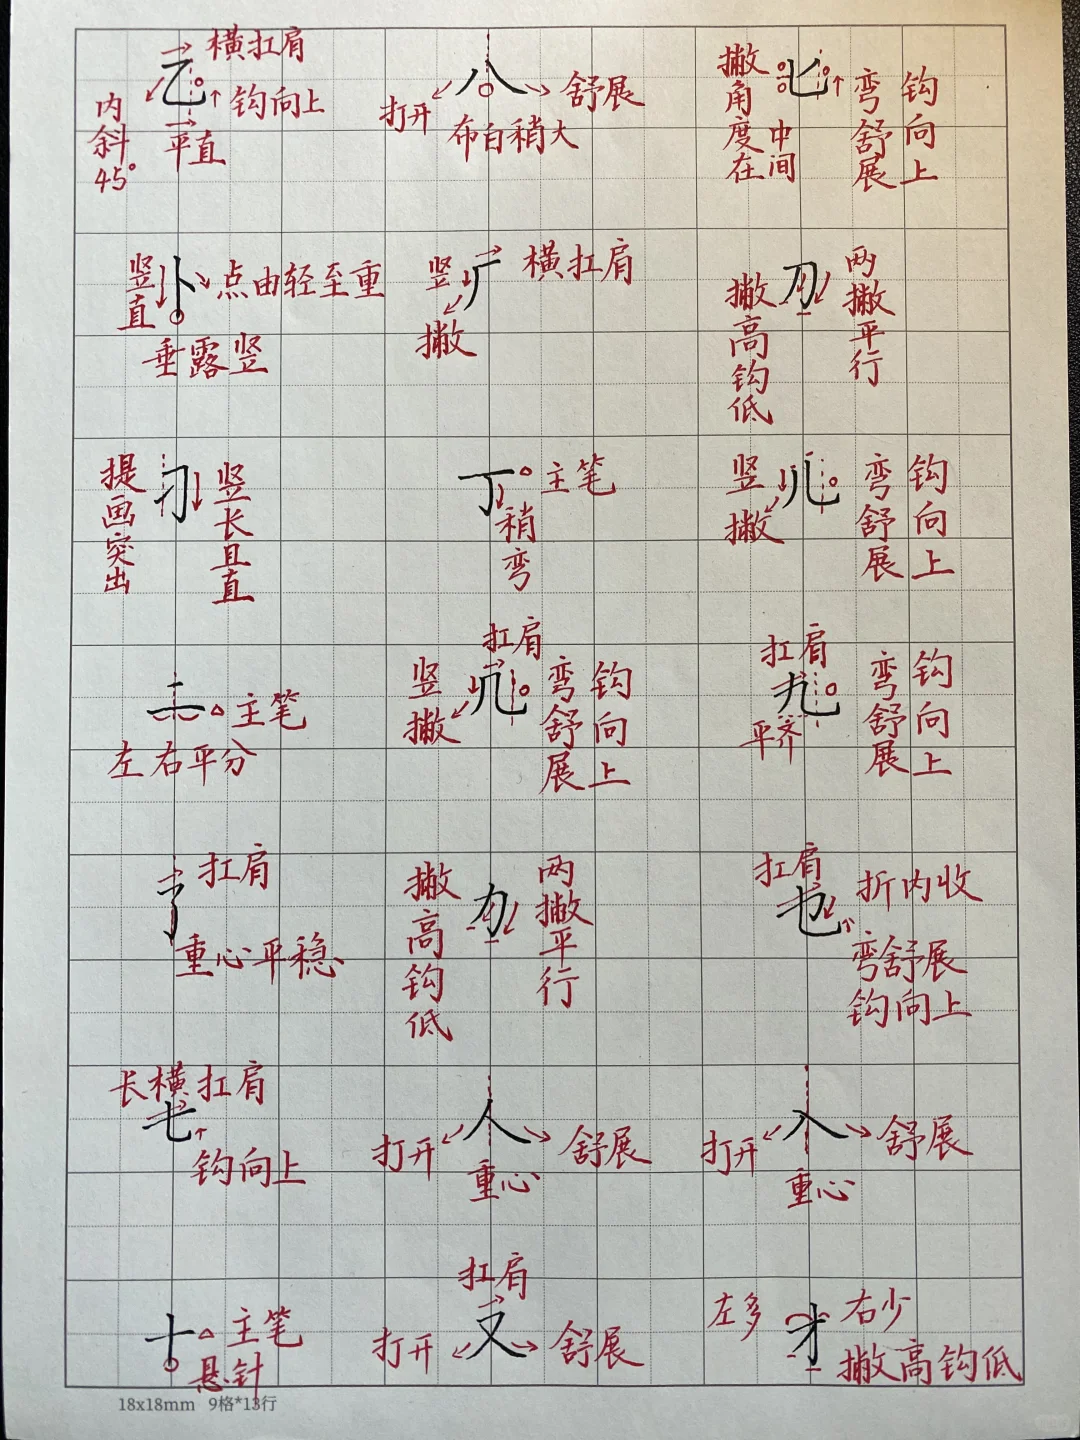 乙
横扛肩
钩向上
平直
内斜45°
八
打开
舒展
布白稍大
匕
撇角度在中间
弯舒展
钩向上
卜
竖直
点由轻至重
垂露竖
厂
竖撇
横扛肩
刀
撇高钩低
两撇平行
刁
提画突出
竖长且直
丁
主笔
稍弯
儿
竖撇
弯舒展
钩向上
二
主笔
左右平分
几
扛肩
竖撇
弯舒展
钩向上
九
扛肩
平齐
弯舒展
钩向上
了
扛肩
重心平稳
力
撇高钩低
两撇平行
也
扛肩
折内收
弯舒展
钩向上
七
长横扛肩
钩向上
人
打开
舒展
重心
入
打开
舒展
重心
十
主笔
悬针
又
扛肩
打开
舒展
才
左多
右少
撇高钩低
18x18mm 9格*13行